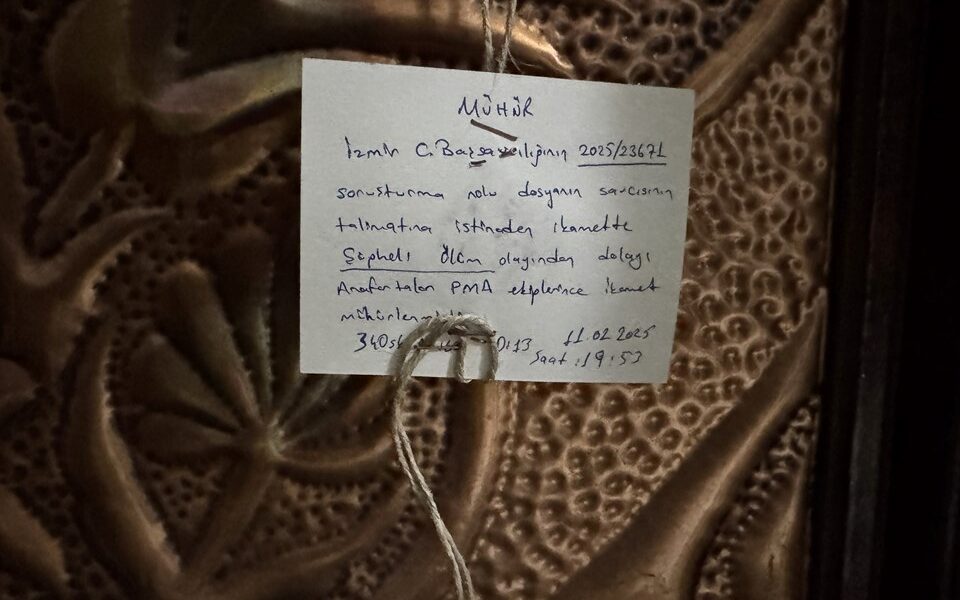 MÜHÜR
İzmir C.Başsavcılığının 2025/23671
soruşturma nolu dosyanın savcısının
talimatına istinaden ikamette
Şüpheli Ölüm olayından dolayı
Anafartalar PMA ekiplerince ikamet
11.02.2025
Saat:19:53